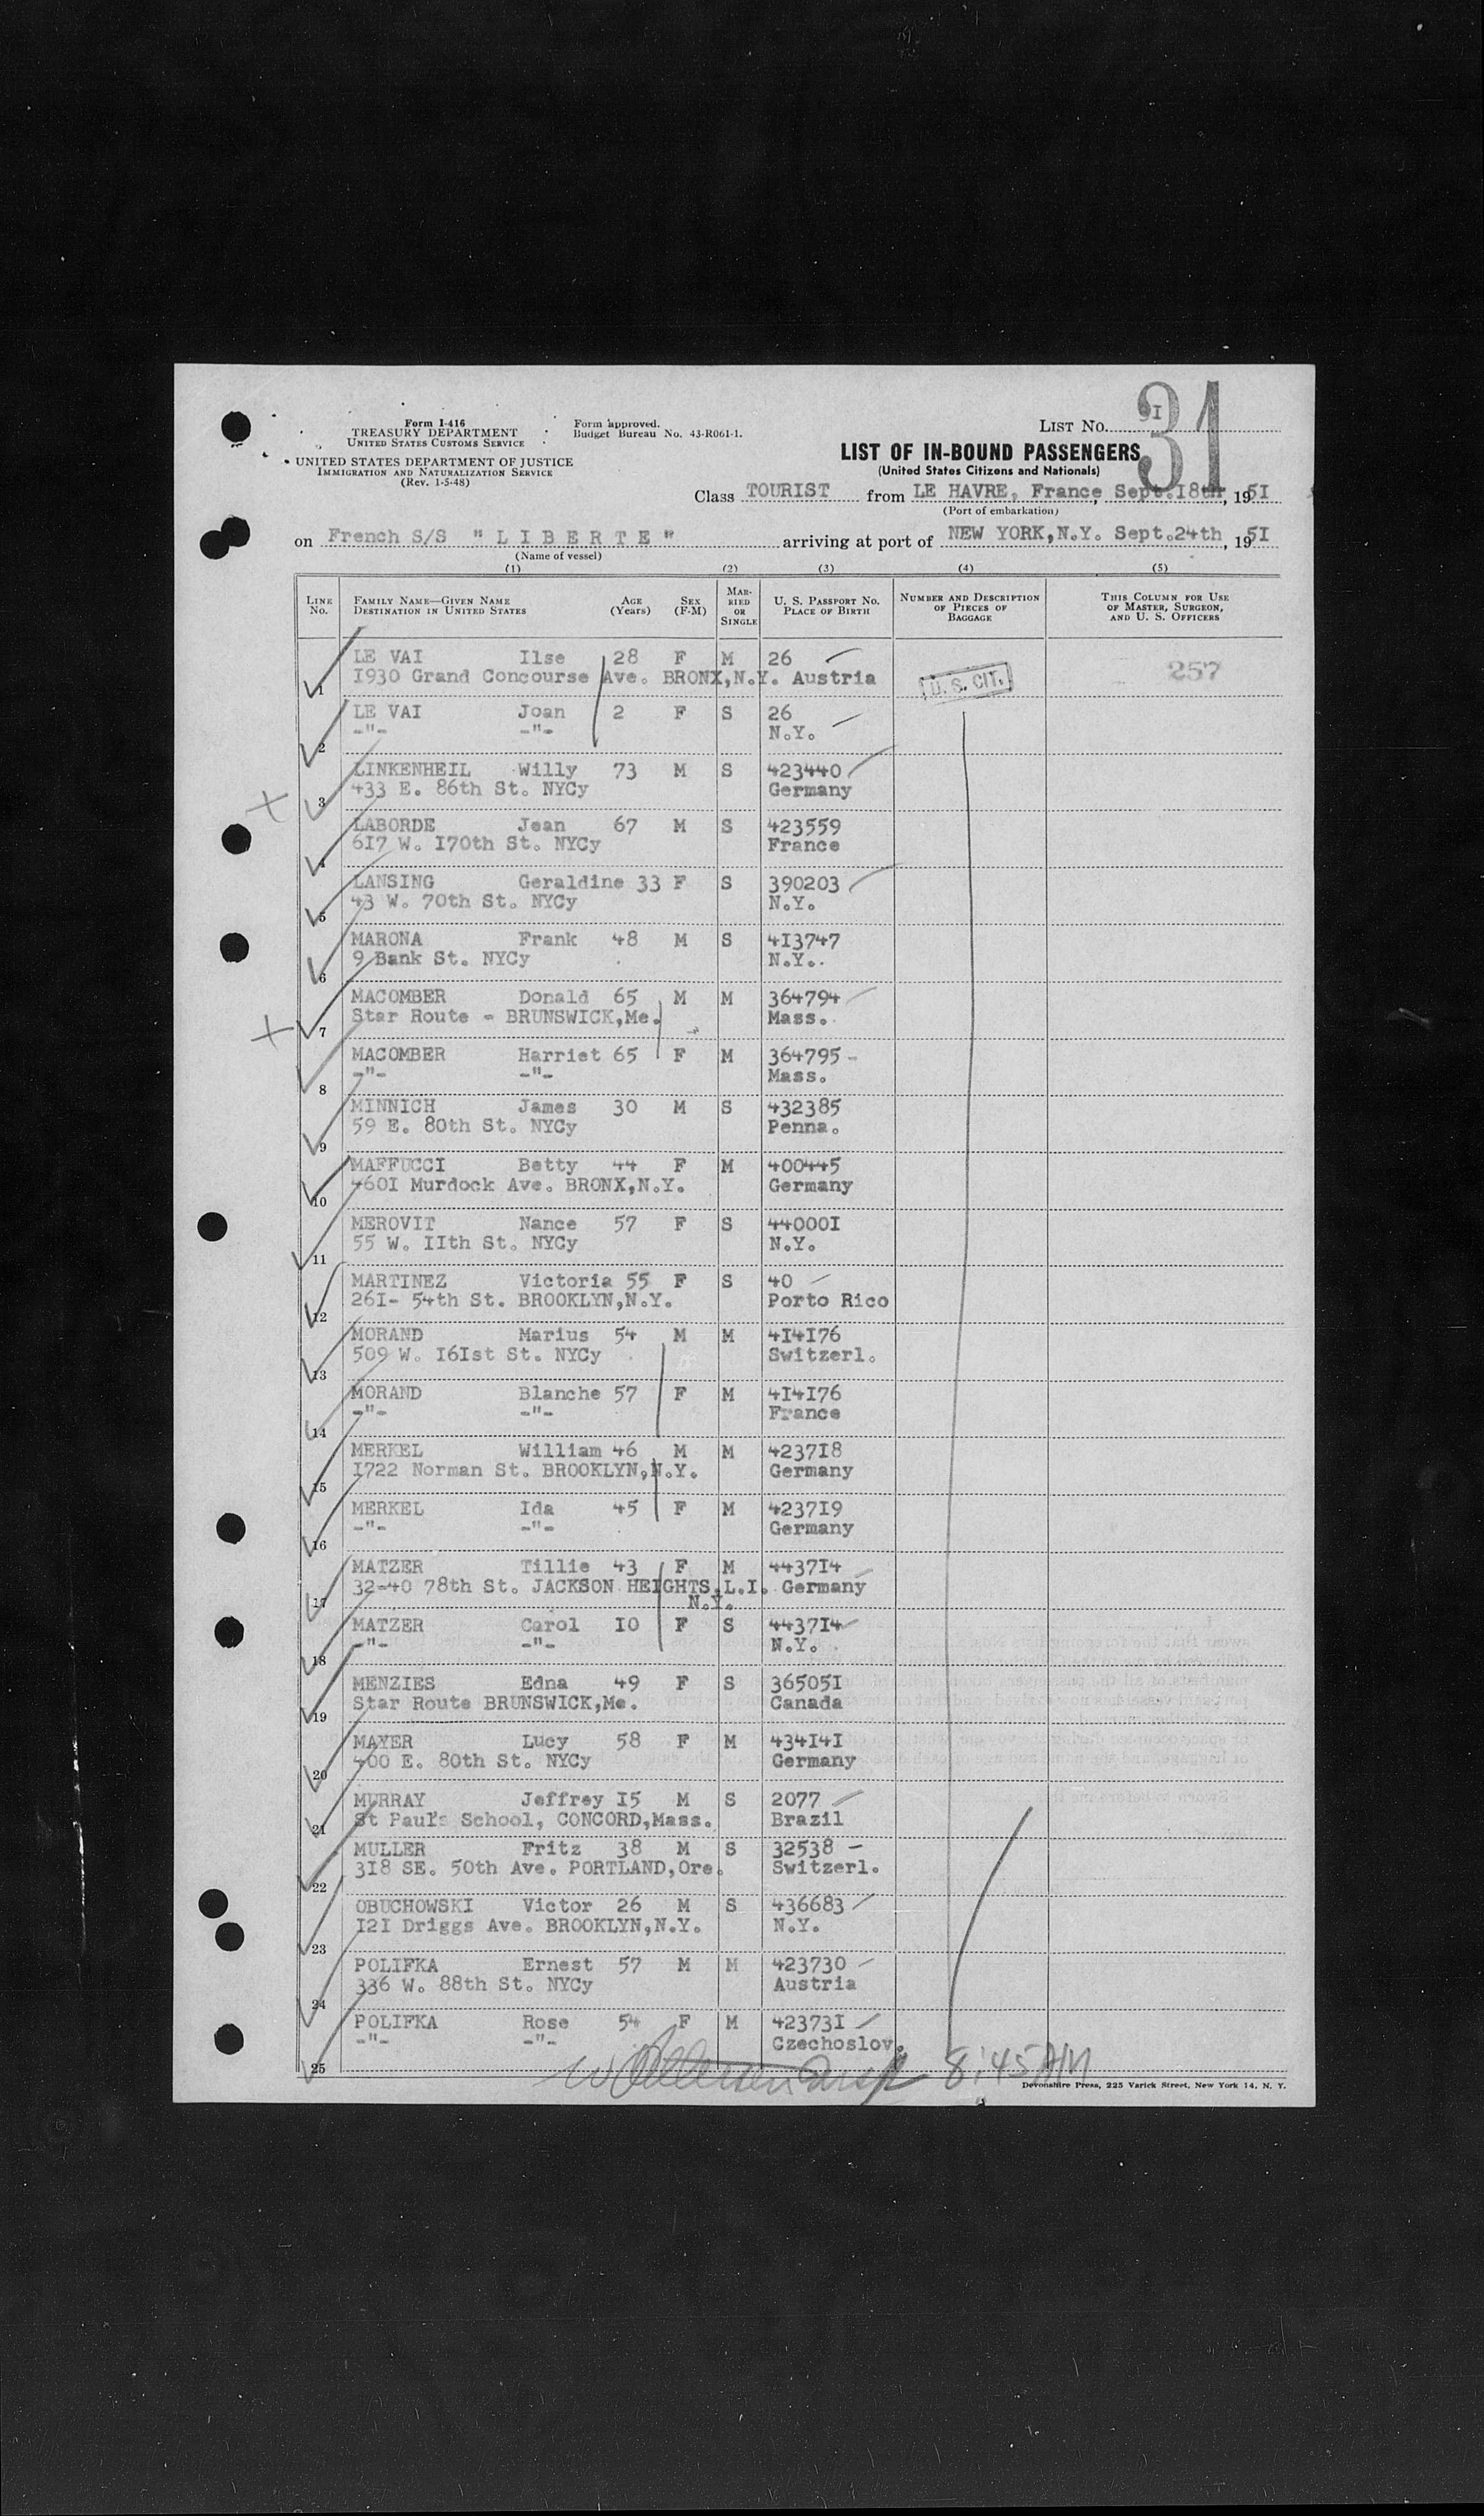 Form I-416
TREASURY DEPARTMENT
UNITED STATES CUSTOMS SERVICE
UNITED STATES DEPARTMENT OF JUSTICE
IMMIGRATION AND NATURALIZATION SERVICE
(Rev. 1-5-48)
Form approved.
Budget Bureau No. 43-R061-1.
LIST No. I
31
LIST OF IN-BOUND PASSENGERS
(United States Citizens and Nationals)
Class TOURIST from LE HAVRE, France, Sept.I8th, 19 5I
(Port of embarkation)
on French S/S "L I B E R T E" arriving at port of NEW YORK,N.Y. Sept.24th, 19 5I
(Name of vessel)
(1) (2) (3) (4) (5)
LINE No. FAMILY NAME—GIVEN NAME DESTINATION IN UNITED STATES AGE (Years) SEX (F-M) MARRIED OR SINGLE U. S. PASSPORT No. PLACE OF BIRTH NUMBER AND DESCRIPTION OF PIECES OF BAGGAGE THIS COLUMN FOR USE OF MASTER, SURGEON, AND U. S. OFFICERS
LE VAI Ilse 28 F M 26 257
1 I930 Grand Concourse Ave. BRONX,N.Y. Austria U. S. CIT.
LE VAI Joan 2 F S 26
2 -"- -"- N.Y.
LINKENHEIL Willy 73 M S 423440
3 433 E. 86th St. NYCy Germany
LABORDE Jean 67 M S 423559
4 6I7 W. I70th St. NYCy France
LANSING Geraldine 33 F S 390203
5 43 W. 70th St. NYCy N.Y.
MARONA Frank 48 M S 4I3747
6 9 Bank St. NYCy N.Y..
MACOMBER Donald 65 M M 364794
7 Star Route - BRUNSWICK,Me. Mass.
MACOMBER Harriet 65 F M 364795
8 -"- -"- Mass.
MINNICH James 30 M S 432385
9 59 E. 80th St. NYCy Penna.
MAFFUCCI Betty 44 F M 400445
10 460I Murdock Ave. BRONX,N.Y. Germany
MEROVIT Nance 57 F S 44000I
11 55 W. IIth St. NYCy N.Y.
MARTINEZ Victoria 55 F S 40
12 26I- 54th St. BROOKLYN,N.Y. Porto Rico
MORAND Marius 54 M M 4I4I76
13 509 W. I6Ist St. NYCy Switzerl.
MORAND Blanche 57 F M 4I4I76
14 -"- -"- France
MERKEL William 46 M M 4237I8
15 I722 Norman St. BROOKLYN,N.Y. Germany
MERKEL Ida 45 F M 4237I9
16 -"- -"- Germany
MATZER Tillie 43 F M 4437I4
17 32-40 78th St. JACKSON HEIGHTS,L.I. Germany
N.Y.
MATZER Carol I0 F S 4437I4
18 -"- -"- N.Y.
MENZIES Edna 49 F S 36505I
19 Star Route BRUNSWICK,Me. Canada
MAYER Lucy 58 F M 434I4I
20 400 E. 80th St. NYCy Germany
MURRAY Jeffrey I5 M S 2077
21 St Paul's School, CONCORD,Mass. Brazil
MULLER Fritz 38 M S 32538
22 3I8 SE. 50th Ave. PORTLAND,Ore. Switzerl.
OBUCHOWSKI Victor 26 M S 436683
23 I2I Driggs Ave. BROOKLYN,N.Y. N.Y.
POLIFKA Ernest 57 M M 423730
24 336 W. 88th St. NYCy Austria
POLIFKA Rose 54 F M 42373I
25 -"- -"- Czechoslov.
8:45 AM
Devonshire Press, 225 Varick Street, New York 14, N. Y.